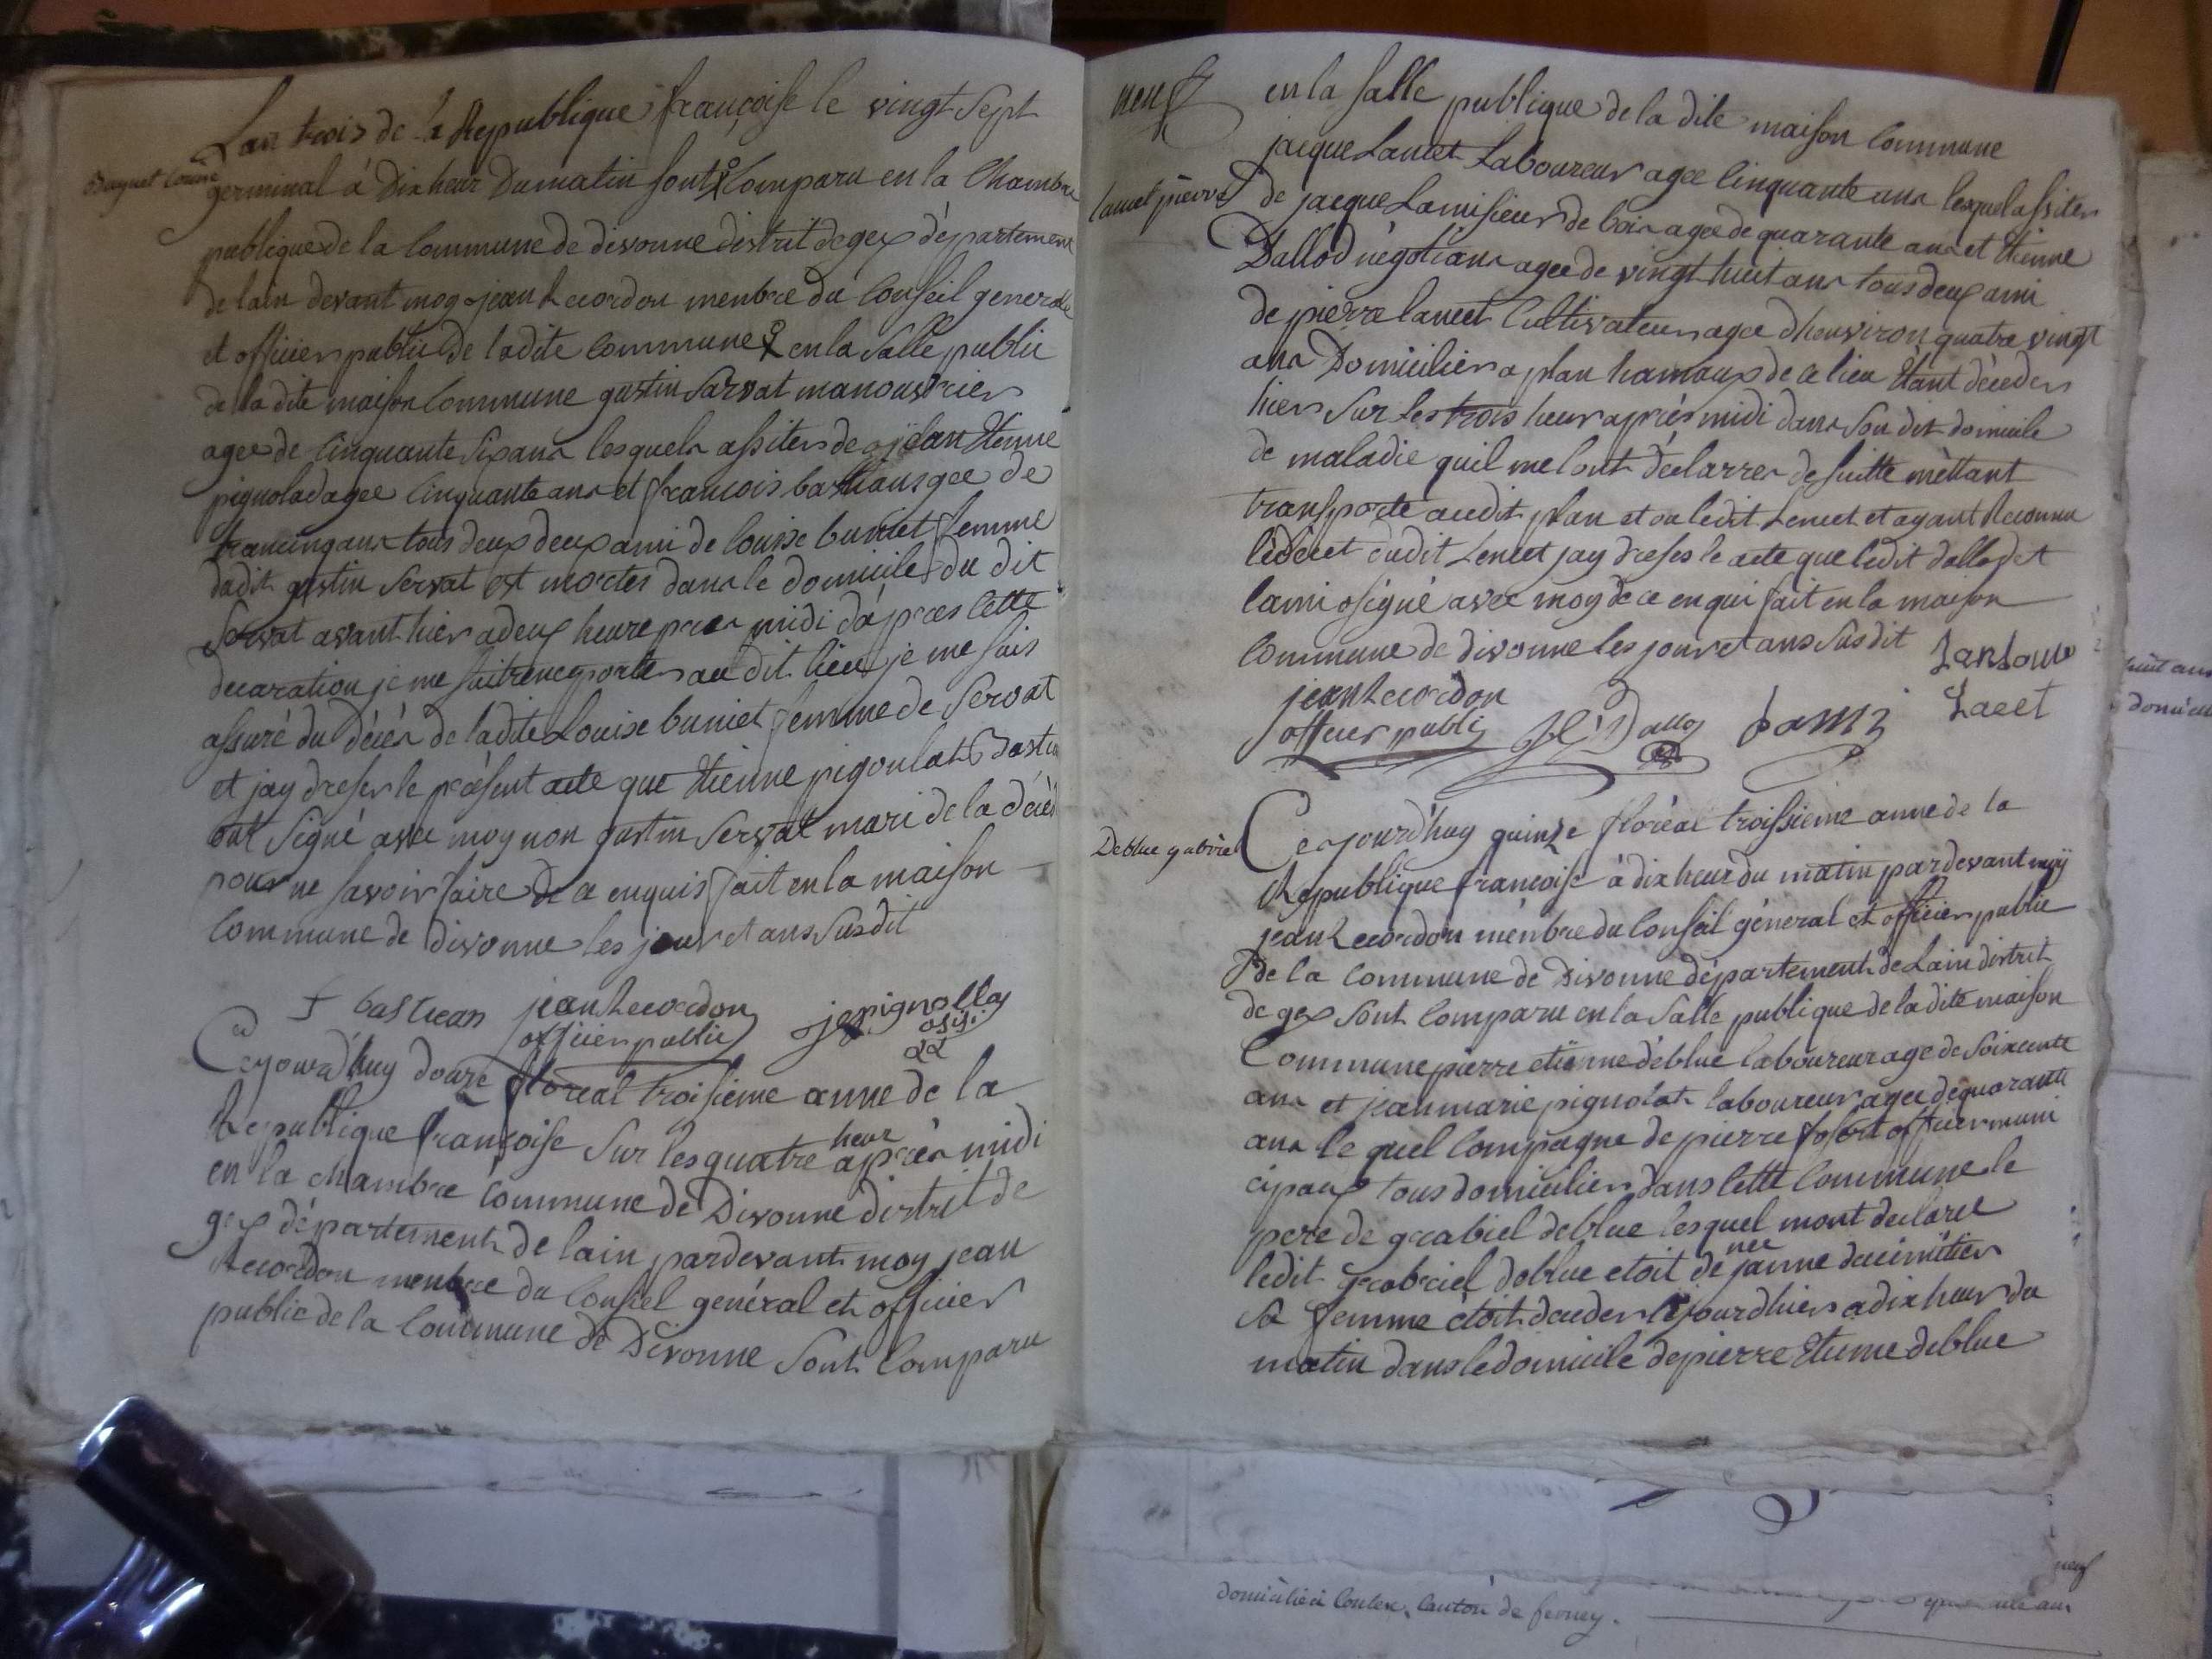 Lan trois de la Republique françoise le vingt sept
Buquet Louise
germinal à dix heur Dumatin sont comparu en la Chambre
publique de la Commune de divonne distrit de gex département
de lain devant moy jean Recordon menbre du Conseil generale
et officier public de ladite commune en la salle public
de la dite maison Commune gustin Sarvat manouvrier
agee de Cinquante six ans lesquels assiter de jean Etienne
pignolad agee Cinquante ans et francois bastian agee de
ans tous deux deux ami de louise buniet femme
dudit gustin Servat est morter dans le domicile du dit
Servat avant hier a deux heure pres midi dápres cette
decaration je me suit au dit lieu je me suis
assuré du décès de ladite Louise buniet femme de Servat
et jay dresser le présent acte que Etienne pigoulat Bastian
ont Signé avec moy non gustin Servat mari de la décès
pour ne savoir faire de ce enquis fait en la maison
Commune de divonne les jour et ans susdit
f bastican jean Recordon
officier public
je pignollay
Ce jourd'huy douze floréal troisieme anne de la
Republique françoise sur les quatre heur après midi
en la chambre commune de Divonne distrit de
gex département de lain pardevant moy jean
Recordon menbre du Consiel général et officier
public de la Commune de Divonne sont Comparu
neuf
en la salle publique de la dite maison Commune
jacque Lancet Laboureur agee Cinquante ans lesquel assiter
lancet pierre
de jacque Lami sieur de bois agee de quarante ans et Etienne
Dallod négotians agee de vingt huit ans tous deux ami
de pierre lancet Cultivateur agee dhenviron quatre vingt
ans Domicilier a plan hamaux de ce lieu Etant déceder
hier sur les trois heur après midi dans son dit domicile
de maladie quil me lont déclarrer de suitte mèttant
transporte audit plan et ou ledit Lencet et ayant Reconnu
ledécet dudit Lencet jay dreser le acte que ledit dallod et
lami o signé avec moy de ce en qui fait en la maison
Commune de divonne les jour et ans Susdit
jean Recordon
officier publi
Dallos
Lami
Lacet
Deblue gabriel
Ce jourd'huy quinze floréal troissieme anne de la
Republique françoise à dix heur du matin pardevant moy
jean Recordon ménbre du Conseil géneral et officier public
de la commune de Divonne département de Lain distrit
de gex sont Comparu en la salle publique de la dite maison
Commune pierre etienne déblue laboureur age de soixcente
ans et jean marie pignolat laboureur agee de quarante
ans le quel Compagne de pierre officier muni
cipaux tous domicilier dans cette Commune le
pere de grabiel deblue lesquel mont declaré
ledit grabriel deblue etoit de nee janne ducimitier
sa femme étoit deceder le jourdhier a dix heur du
matin dans le domicile de pierre Etienne deblue
huit ans
domicili
neuf
domicilié à , Canton de ferney.